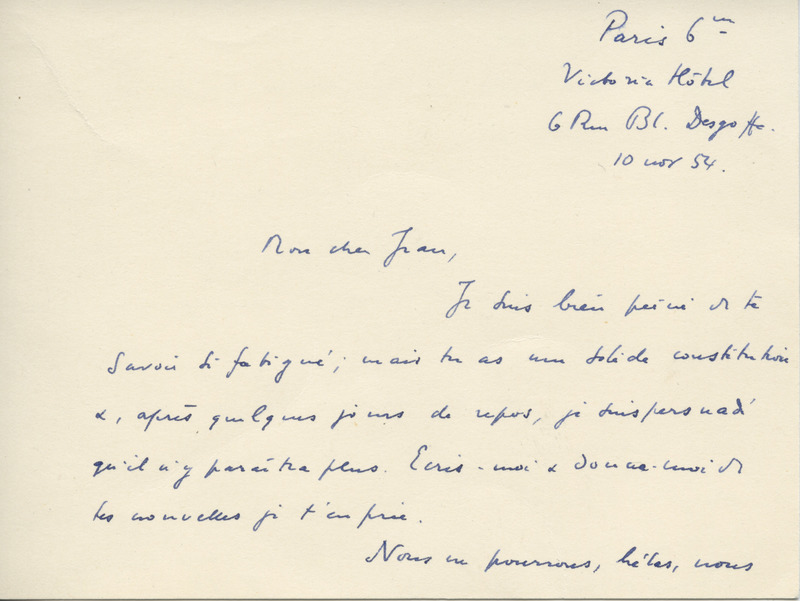 Paris 6me
Victoria Hôtel
6 Rue Bl. Desgoffe.
10 nov 54.
Mon cher Jean,
Je suis bien peiné de te
savoir si fatigué; mais tu as une solide constitution
&, après quelques jours de repos, je suis persuadé
qu'il n'y paraîtra plus. Ecris-moi & donne-moi de
tes nouvelles je t'en prie.
Nous ne pourrons, hélas, nous